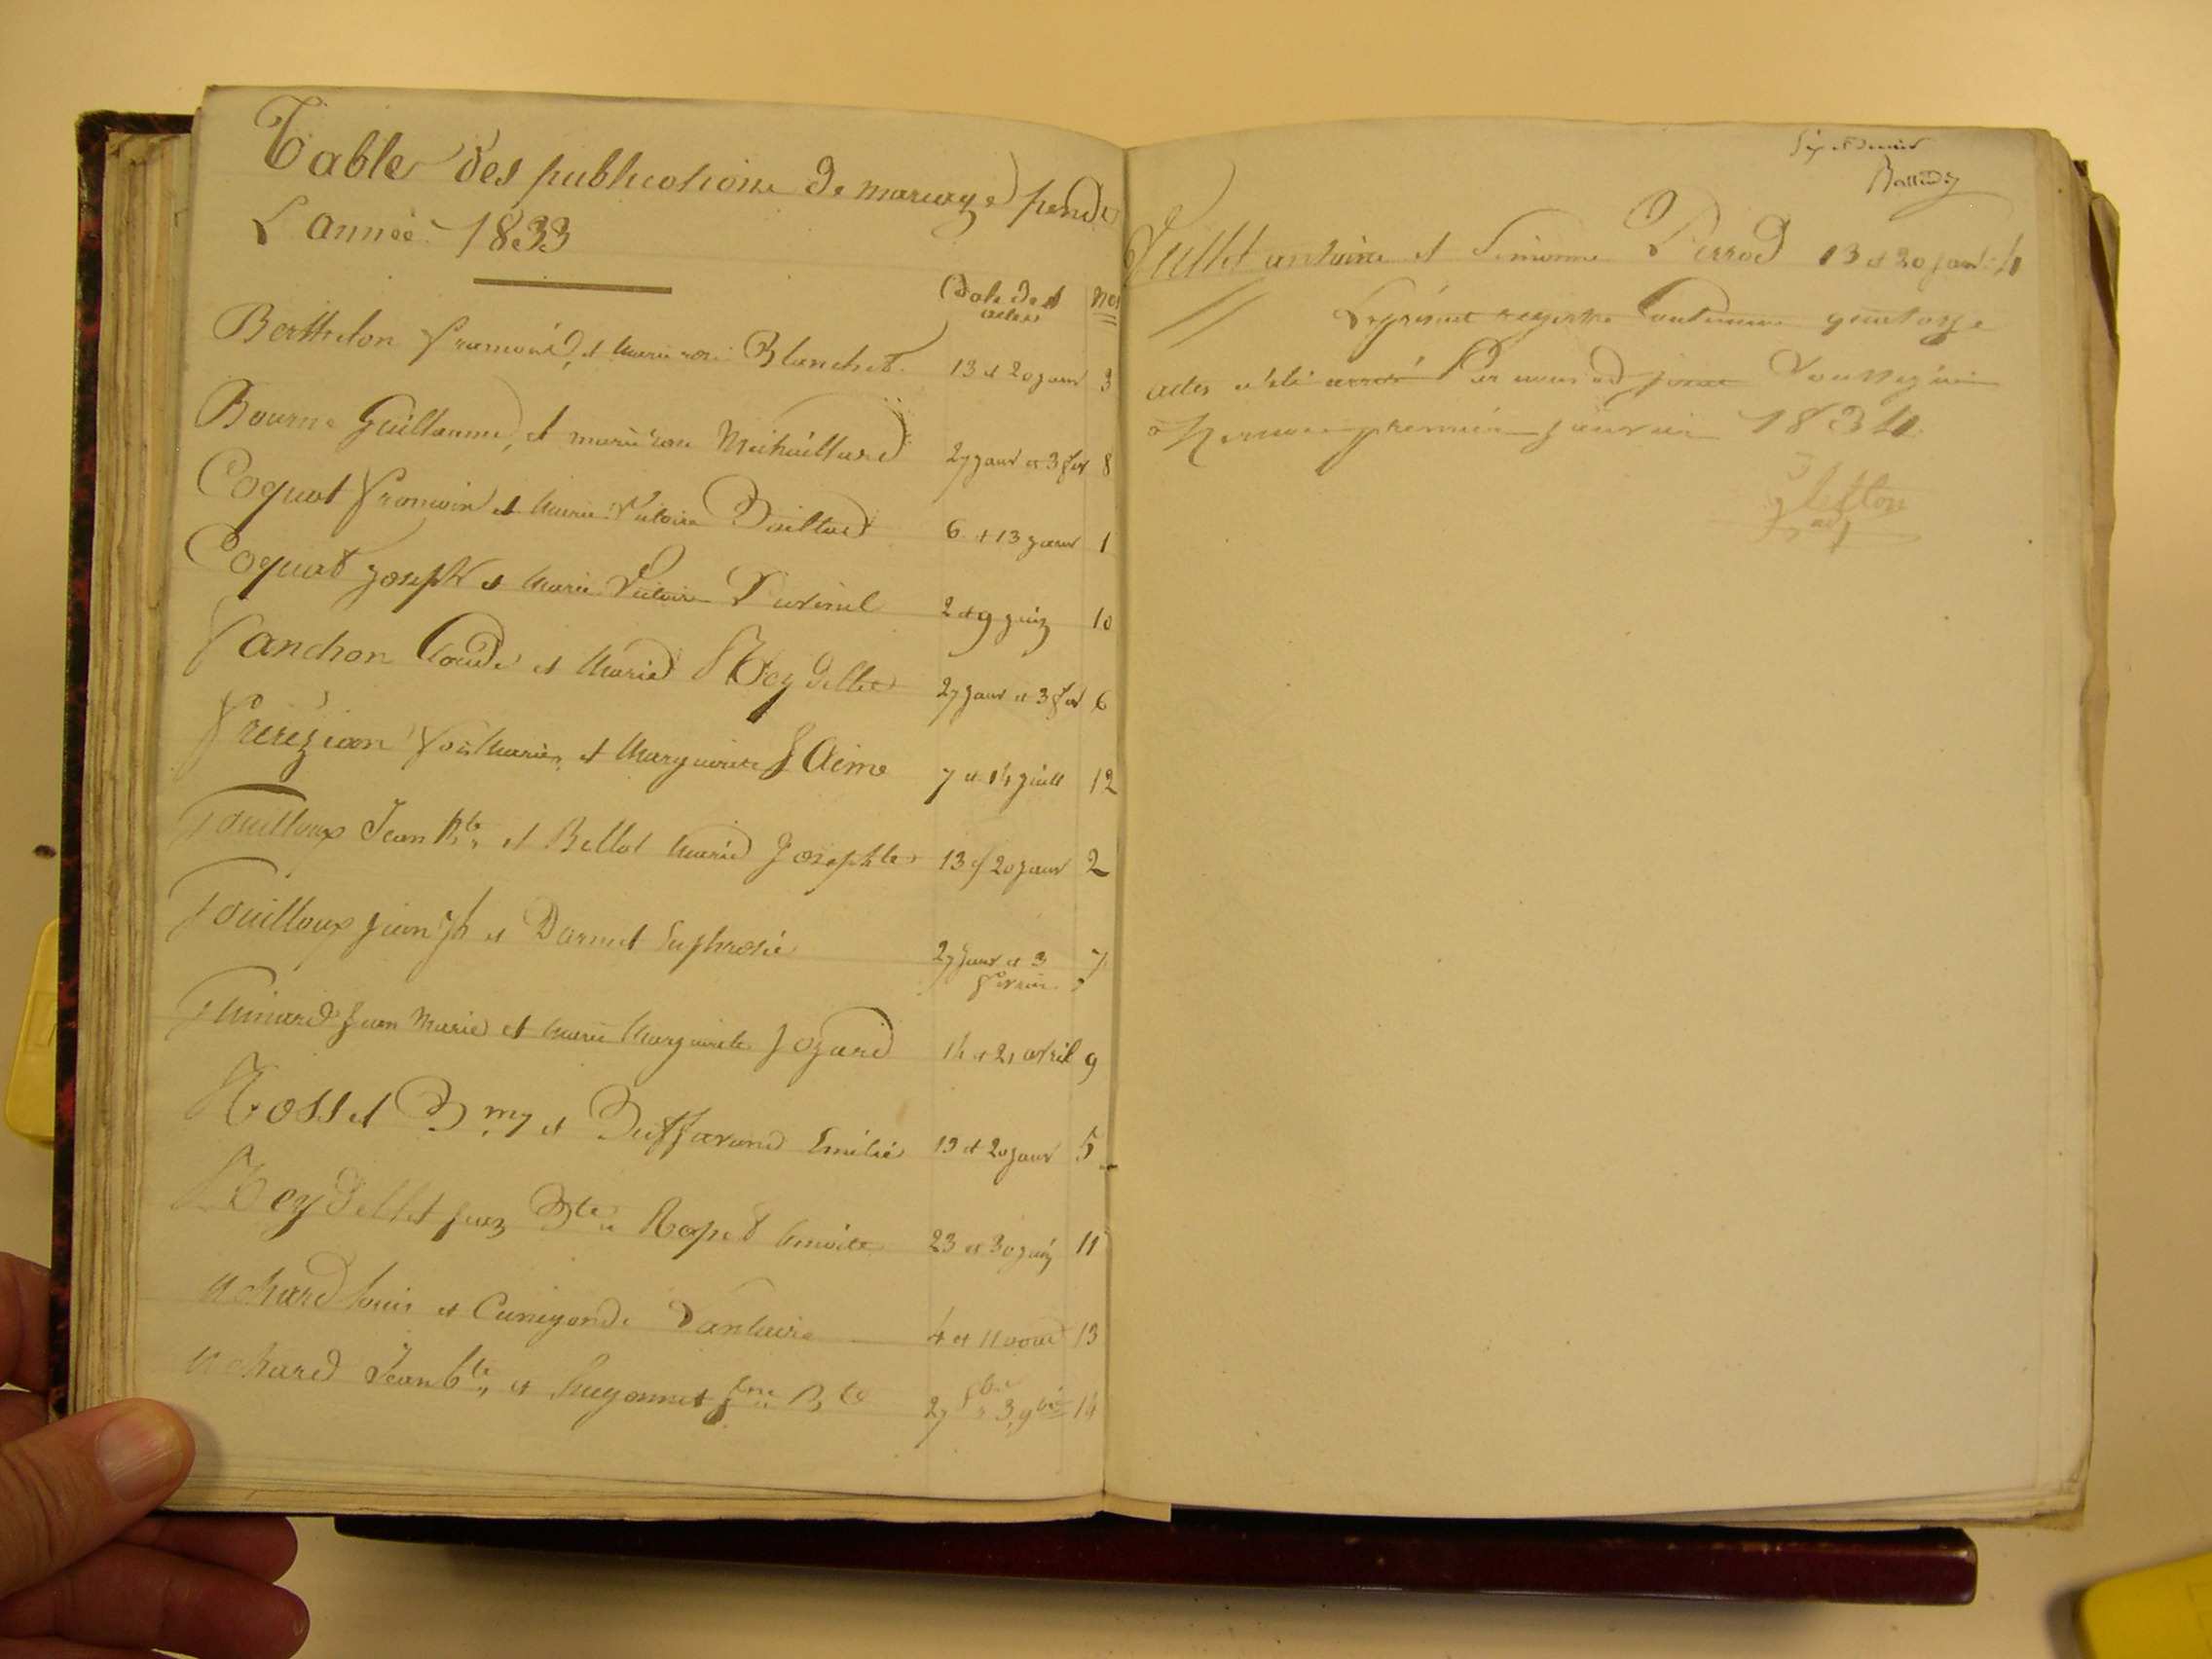 Table des publications de mariage pendt
L'année 1833
Date des actes Nos
Berthelon François et Marie rose Blanchet 13 et 20 janv 3
Bourne Guillaume, et marie rose Michaillard 27 janv et 3 fev 8
Coquat François et Marie Victoire Baillard 6 et 13 janv 1
Coquat joseph et Marie Victoire 2 et 9 juin 10
Fanchon Claude et Marie Reydellet 27 janv et 3 fev 6
Frerejean et Marguerite 7 et 14 juill 12
Fouilloux Jean Bte, et Bellot Marie Josephte 13 et 20 janv 2
Fouilloux jean Jh et Darmet Euphrosie 27 janv et 3 fevrier 7
jean Marie et Marie Marguerite Jozard 14 et 21 avril 9
Rosset Bmy et Emélie 13 et 20 janv 5
Reydellet Bte et Rapet benoite 23 et 30 juin 11
uchard louis et Cunegonde 4 et 11 aout 13
uchard Jean bte, et Bte 27 8bre 3 9bre 14
Six et dernier
Vullet antoine et Simonne Perrod 13 et 20 janv 4
Le présent registre Contenant quatorze
actes a été arreté Par nous adjoint Soussigné
a premier janvier 1834
adj